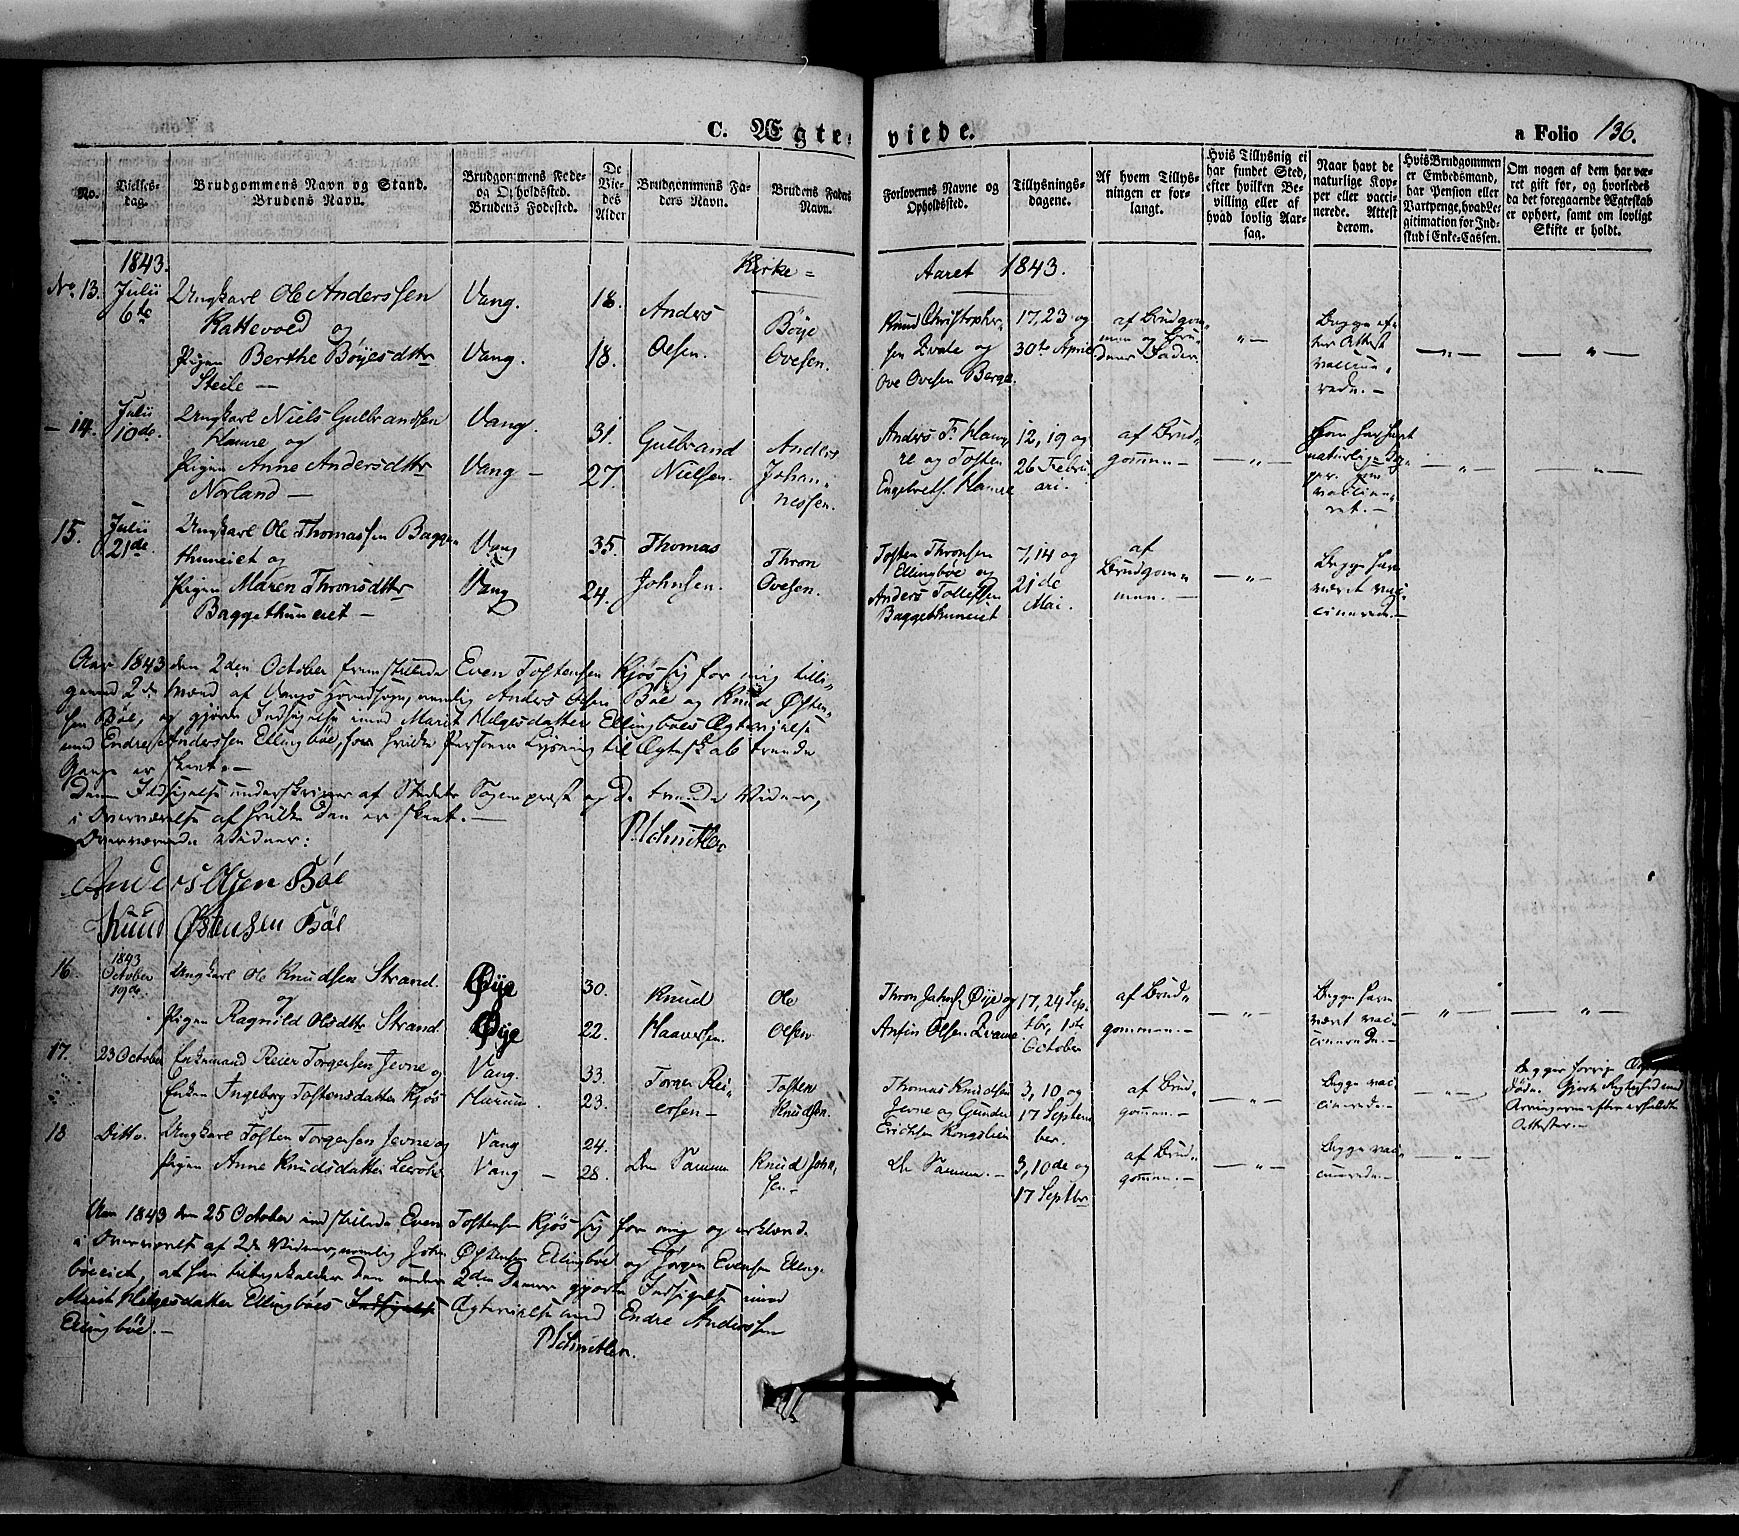 C. Ægteviede.
a Folio 136.
No.
Vielses-dag.
Brudgommens Navn og Stand.
Brudens Navn.
Brudgommens Føde- og Opholdssted.
Brudens Fødested.
De Viedes Alder
Brudgommens Faders Navn.
Brudens Faders Navn.
Forlovernes Navne og Opholdssted.
Tillysnings-dagene.
Af hvem Tillysningen er forlangt.
Hvis Tillysnig ei har fundet Sted, efter hvilken Bevilling eller af hvad lovlig Aarsag.
Naar havt de naturlige Kopper eller vaccinerede. Attest derom.
Hvis Brudgommen er Embedsmand, har Pension eller Vartpenge, hvad Legitimation for Indskud i Enke-Cassen.
Om nogen af dem har været gift før, og hvorledes da det foregaaende Ægteskab er ophørt, samt om lovligt Skifte er holdt.
1843. Kirke= Aaret 1843.
No 13. Julii 6te Ungkarl Ole Anderssen Vang. 18. Anders Oesen. Bøye Ovesen.
Kattevold og
Pigen Berthe Bøyesdttr Vang. 18.
Steile —
Knud Christophersen Kvale og Ove Ovesen Berge. 17, 23 og 30te April af Brudgommen og Brudens Fader —"— Begge efter Attest vaccinerede. — —"— —"—
— 14. Julii 10de. Ungkarl Niels Gulbrandsen Vang. 31. Gulbrand Nielsen. Anders Johannessen.
Hamre og
Pigen Anne Andersdttr Vang — 27.
Norland —
Anders F. Hamre og Tosten Engebrets. Hamre 12, 19 og 26 Februari. af Brudgommen — —"— —"— —"—
15. Julii 21de. Ungkarl Ole Thomassen Bagge- Vang 35. Thomas Johnsen. Thron Ovesen.
thuneiet og
Pigen Maren Thronsdttr Vang 24.
Baggethuneiet —
Tosten Thronsen Ellingbøe og Anders Tollefsen Baggethuneiet 7, 14 og 21de Mai. af Brudgommen. — —"— Begge have været vaccinerede. —
Aar 1843 den 2den October fremstillede Even Tostensen Kjøs sig for mig tilli-
gemed 2de Mænd af Vangs Hovedsogn, nemlig Anders Olsen Bøe og Knud Østen-
sen Bøe, og gjorde Indsigelse mod Marit Helgesdatter Ellingbøes Ægtevielse
med Endre Anderssen Ellingbøe, for hvilke Personer Lysning til Ægteskab trende
Gange er skeet. —
Denne Indsigelse underskrives af Stedets Sognepræst og de tvende Vidner,
i Overværelse af hvilke den er skeet. —
Overværende Vidner: P. Schnitler
Anders Olsen Bøe
Knud Østensen Bøe
16. 1843 October 19de. Ungkarl Ole Knudsen Strand. Øye 30. Knud Haaversen. Ole Olsen
og
Pigen Ragnild Olsdttr Strand. Øye 22.
Thron Johns. Øye og Anfin Olsen Kvame 17, 24 Septbr, 1ste October af Brudgommen. — —"— Begge have været vaccinerede. — —"— —"—
17. 23 October Enkemand Reier Torgersen Jevne og Vang. 33. Torger Reiersen — Tosten Knudsen.
Enken Ingeborg Tostensdatter Kjøs Hurum. 23.
Thomas Knudsen Jevne og Gunder Erichsen Kongslien 3, 10 og 17 September. af Brudgommen. — —"— Begge vaccinerede. — —"—
18 Ditto. Ungkarl Tosten Torgersen Jevne og Vang 24. Den Samme Knud Johnsen —
Pigen Anne Knudsdatter Vang — 28.
De Samme. — 3, 10de og 17 Septbr af Brudgommen. — —"— Begge vaccinerede. — —"—
Aar 1843 den 25 October indstillede Even Tostensen Kjøs sig for mig og erklærede
i Overværelse af 2de Vidner, nemlig John Østensen Ellingbøe og Jørgen Evensen Elling-
bøeeiet, at han tilbagekalder den under 2den Dennes gjorte Indsigelse imod
Marit Helgesdatter Ellingbøes Indsigelse Ægtevielse med Endre Anderssen
Ellingbøe. —
P. Schnitler.